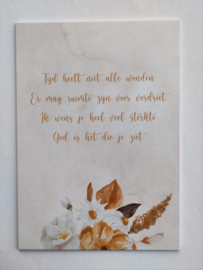 Tijd heelt niet alle wonden
Er mag ruimte zijn voor verdriet
Ik wens je heel veel sterkte
God is het die je ziet